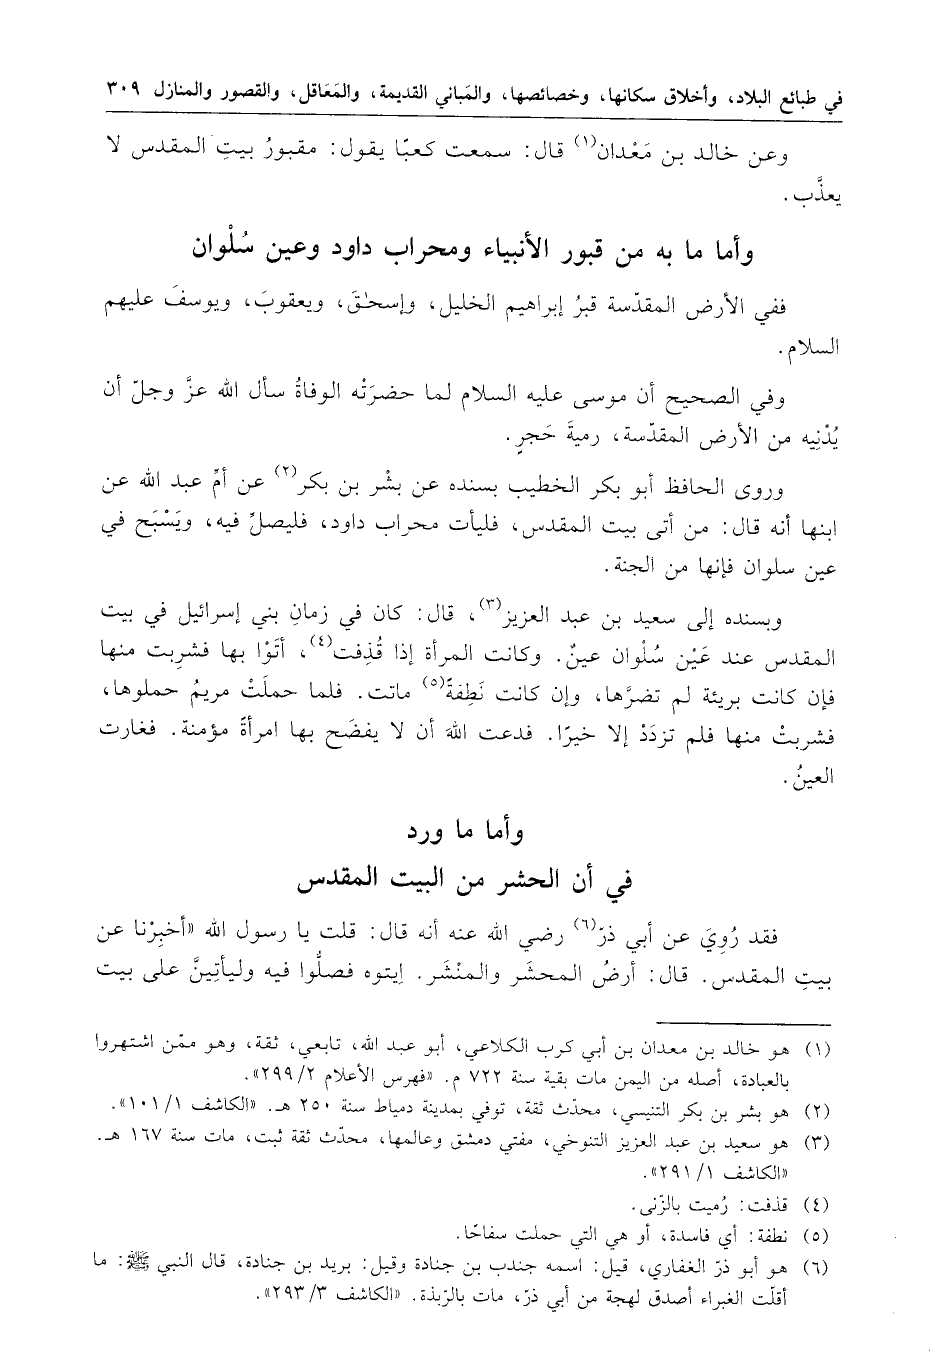 في طبائع البلاد، وأخلاق سكانها، وخصائصها، والمَباني القديمة، والمَعَاقل، والقصور والمنازل ٣٠٩
وعن خالد بن مَعْدان(١) قال: سمعت كعبًا يقول: مقبورُ بيتِ المقدس لا
يعذَّب.
وأما ما به من قبور الأنبياء ومحراب داود وعين سُلْوان
ففي الأرض المقدّسة قبرُ إبراهيم الخليل، وإسحٰقَ، ويعقوبَ، ويوسفَ عليهم
السلام.
وفي الصحيح أن موسى عليه السلام لما حضرَتْه الوفاةُ سأل الله عزَّ وجلّ أن
يُدْنِيه من الأرض المقدّسة، رميةَ حَجرٍ.
وروى الحافظ أبو بكر الخطيب بسنده عن بشْر بن بكر(٢) عن أمِّ عبد الله عن
ابنها أنه قال: من أتى بيت المقدس، فليأت محراب داود، فليصلِّ فيه، ويَسْبَح في
عين سلوان فإنها من الجنة.
وبسنده إلى سعيد بن عبد العزيز(٣)، قال: كان في زمانِ بني إسرائيل في بيت
المقدس عند عَيْن سُلْوان عينٌ. وكانت المرأة إذا قُذِفت(٤)، أتَوْا بها فشرِبت منها
فإن كانت بريئة لم تضرَّها، وإن كانت نَطِفةً(٥) ماتت. فلما حملَتْ مريمُ حملوها،
فشربتْ منها فلم تزدَدْ إلا خيرًا. فدعت اللهَ أن لا يفضَح بها امرأةً مؤمنة. فغارت
العينُ.
وأما ما ورد
في أن الحشر من البيت المقدس
فقد رُوِيَ عن أبي ذرّ(٦) رضي الله عنه أنه قال: قلت يا رسول الله «أخبِرْنا عن
بيتِ المقدس. قال: أرضُ المحشَر والمنْشَر. اِيتوه فصلُّوا فيه وليأتِينَّ على بيت
(١) هو خالد بن معدان بن أبي كرب الكلاعي، أبو عبد الله، تابعي، ثقة، وهو ممّن اشتهروا
بالعبادة، أصله من اليمن مات بقية سنة ٧٢٢ م. «فهرس الأعلام ٢/ ٢٩٩».
(٢) هو بشر بن بكر التنيسي، محدّث ثقة، توفي بمدينة دمياط سنة ٢٥٠ هـ. «الكاشف ١/ ١٠١».
(٣) هو سعيد بن عبد العزيز التنوخي، مفتي دمشق وعالمها، محدّث ثقة ثبت، مات سنة ١٦٧ هـ.
«الكاشف ١/ ٢٩١».
(٤) قذفت: رُميت بالزّنى.
(٥) نطفة: أي فاسدة، أو هي التي حملت سفاحًا.
(٦) هو أبو ذرّ الغفاري، قيل: اسمه جندب بن جنادة وقيل: بريد بن جنادة، قال النبي ﷺ: ما
أقلّت الغبراء أصدق لهجة من أبي ذرّ، مات بالرّبذة. «الكاشف ٣/ ٢٩٣».